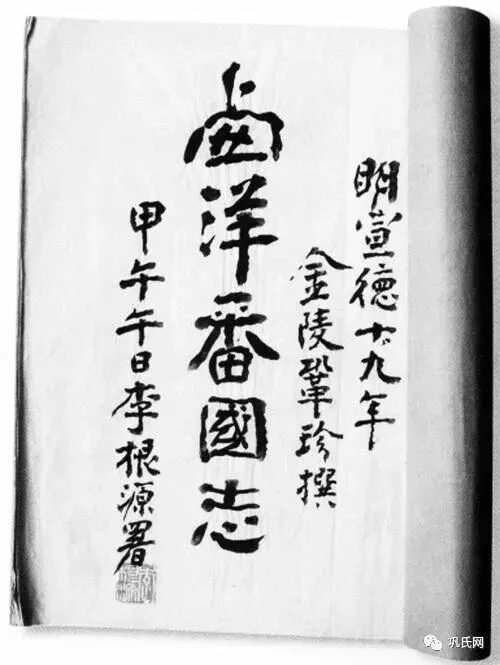 明宣德十九年
金陵鞏珍撰
卥洋番國志
甲午午日李根源署
巩氏网